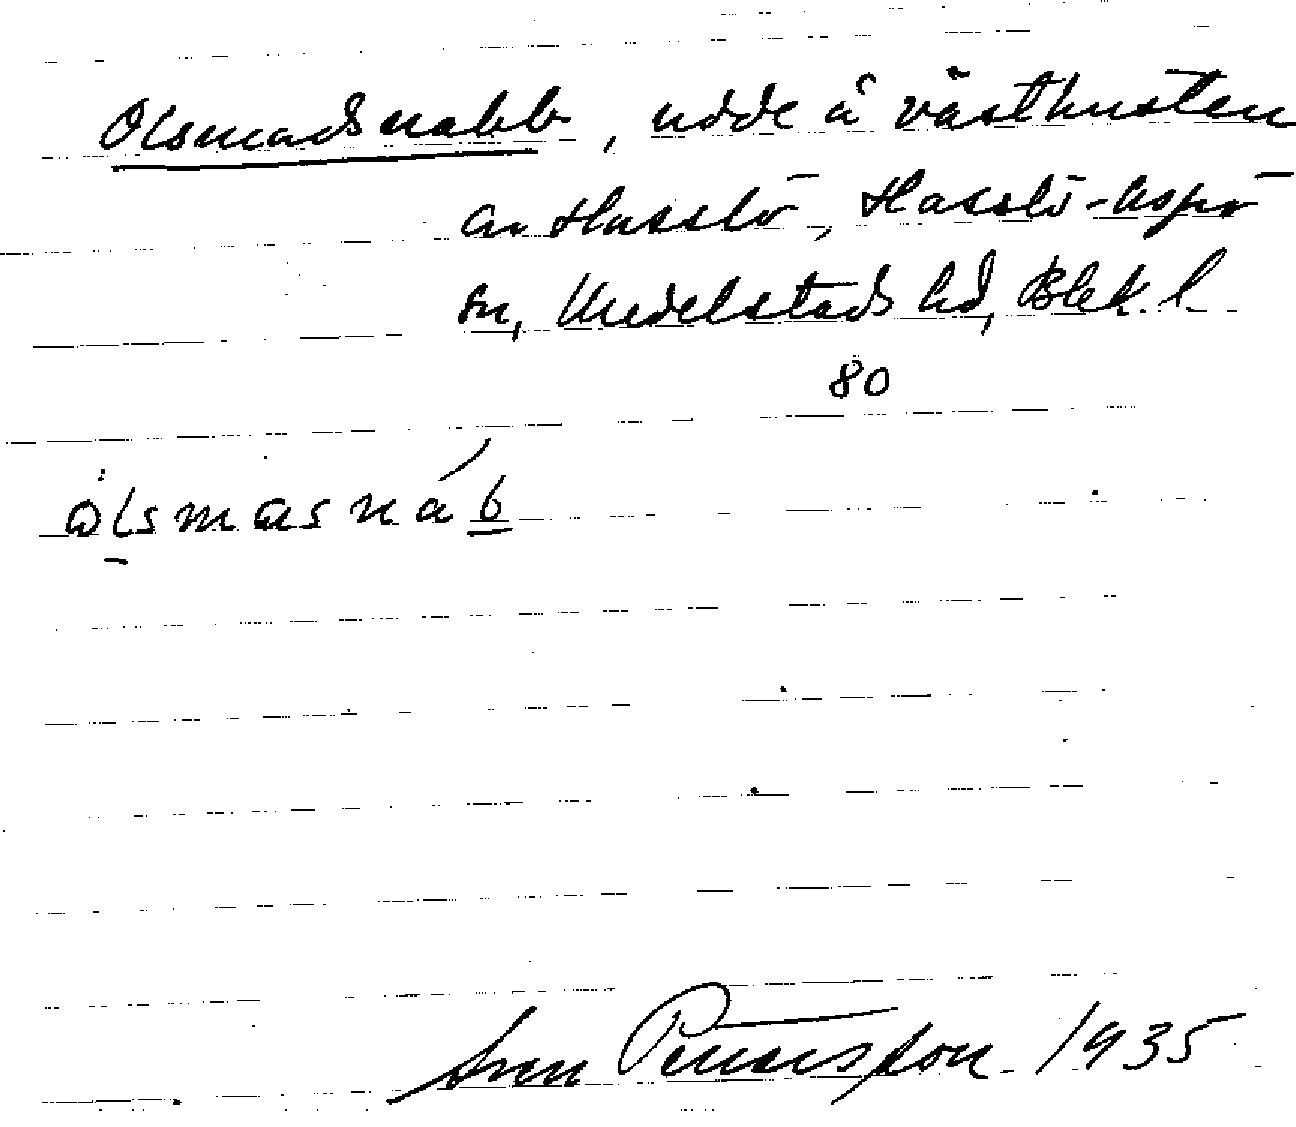 Olsmadsnabb, udde å västkusten
av Hasslö, Hasslö-Aspö
sn, Medelstads hd, Blek. l.
80
ölsmasnáb
Sven Pettersson 1935